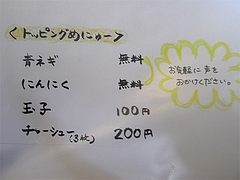 ＜トッピングめにゅー＞
青ネギ 無料
にんにく 無料
玉子 100円
チャーシュー(3枚) 200円
お気軽に声を
おかけください。